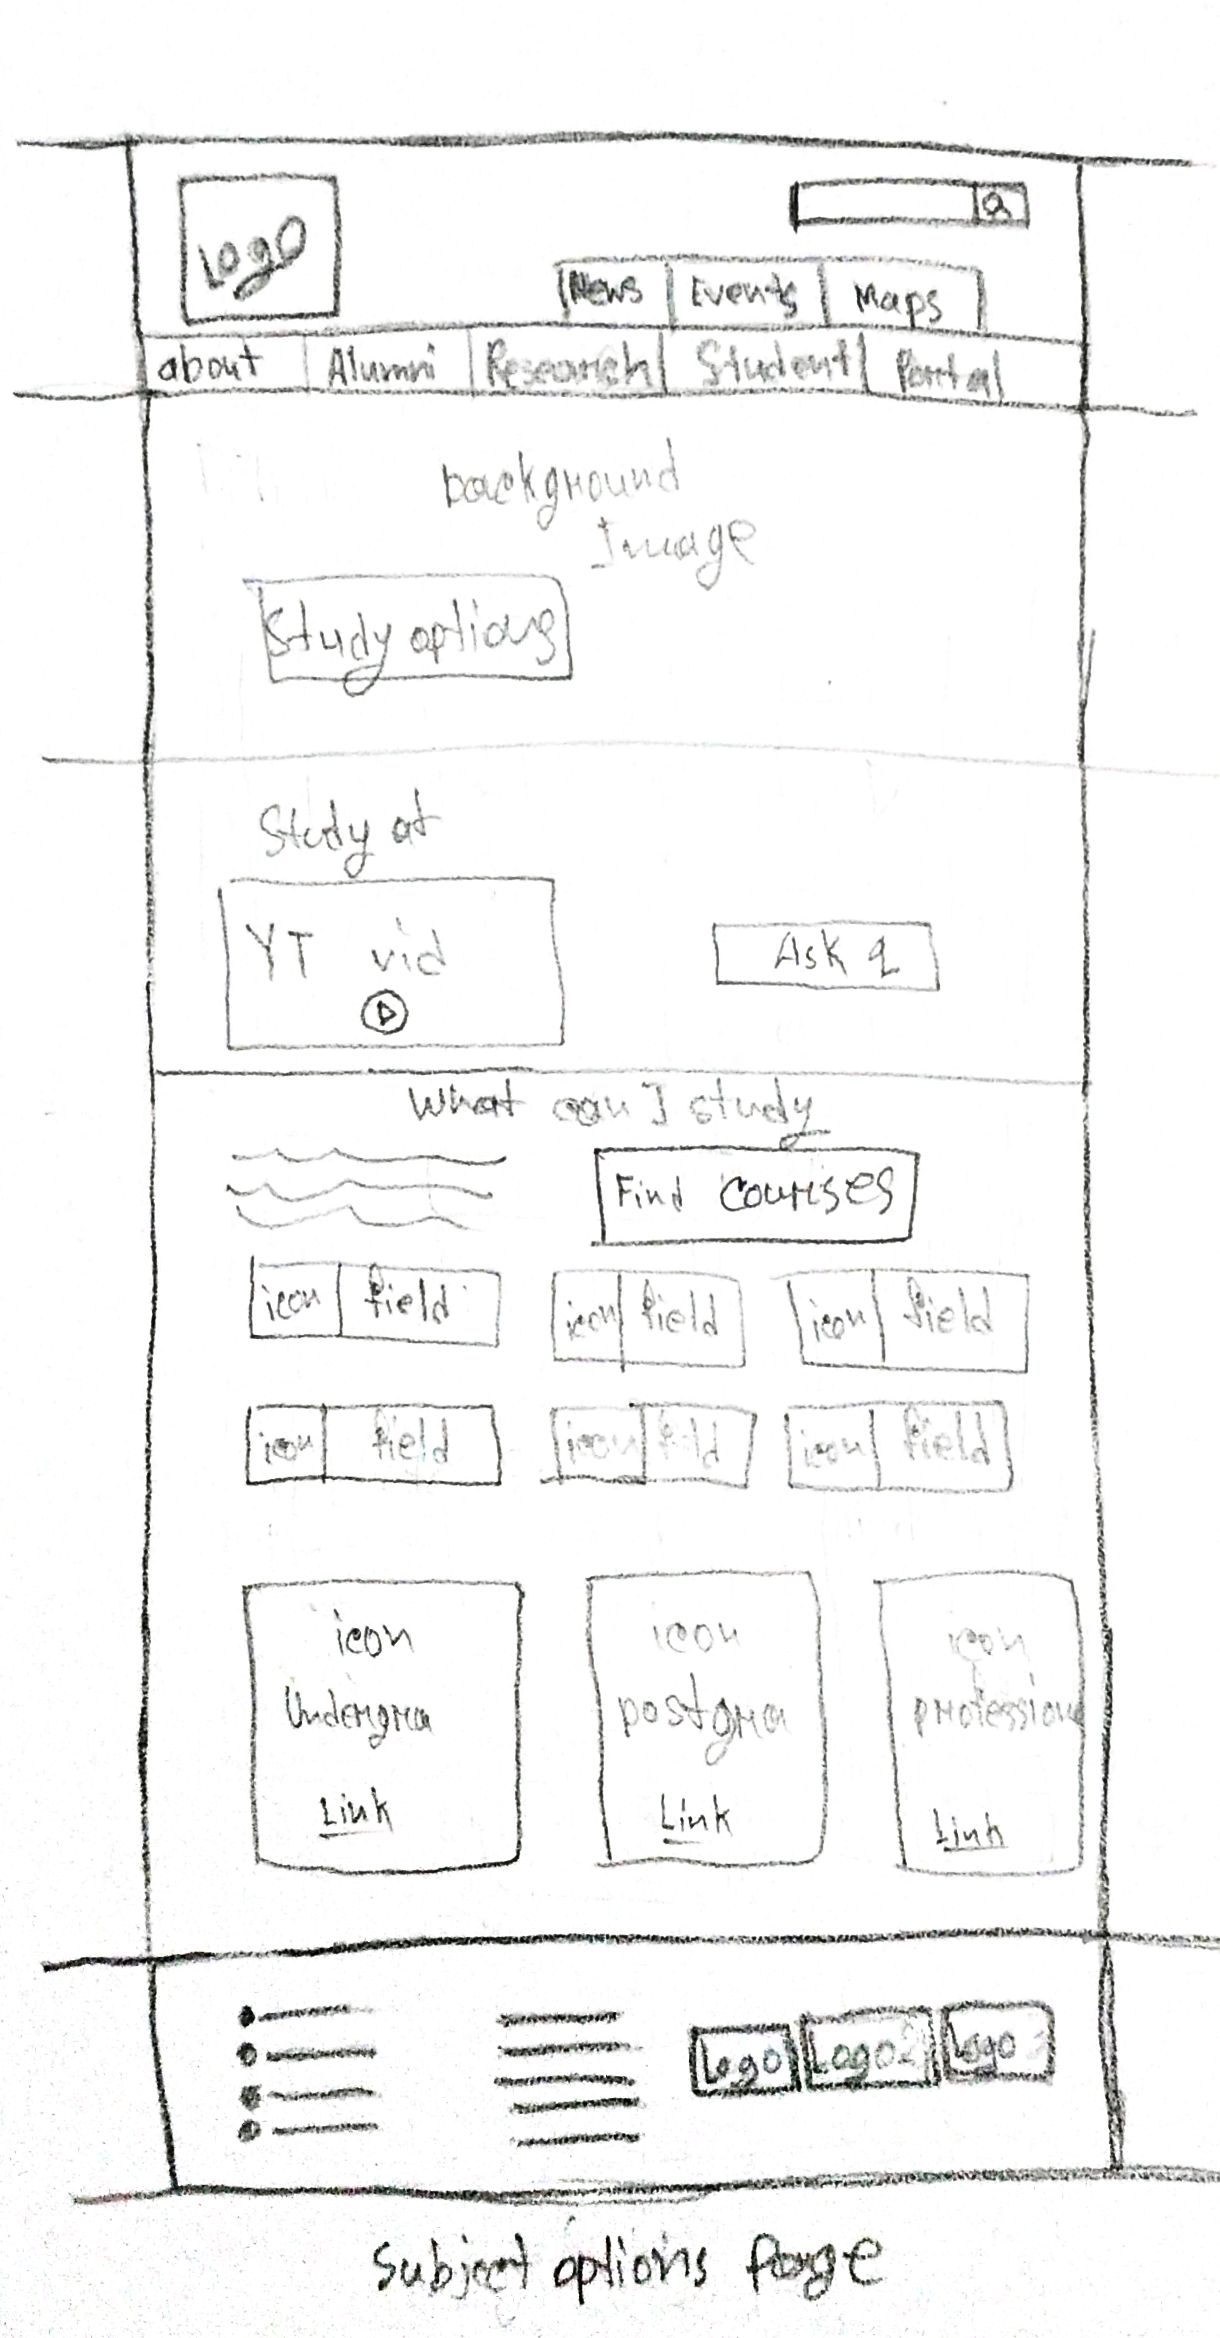 Logo
News Events Maps
about Alumni Research Student Portal
background
Image
Study options
Study at
YT vid
Ask q
What can I study
Find courses
icon field icon field icon field
icon field icon field icon field
icon icon icon
Undergra postgra profession
Link Link Link
Logo Logo 2 Logo 3
Subject options page